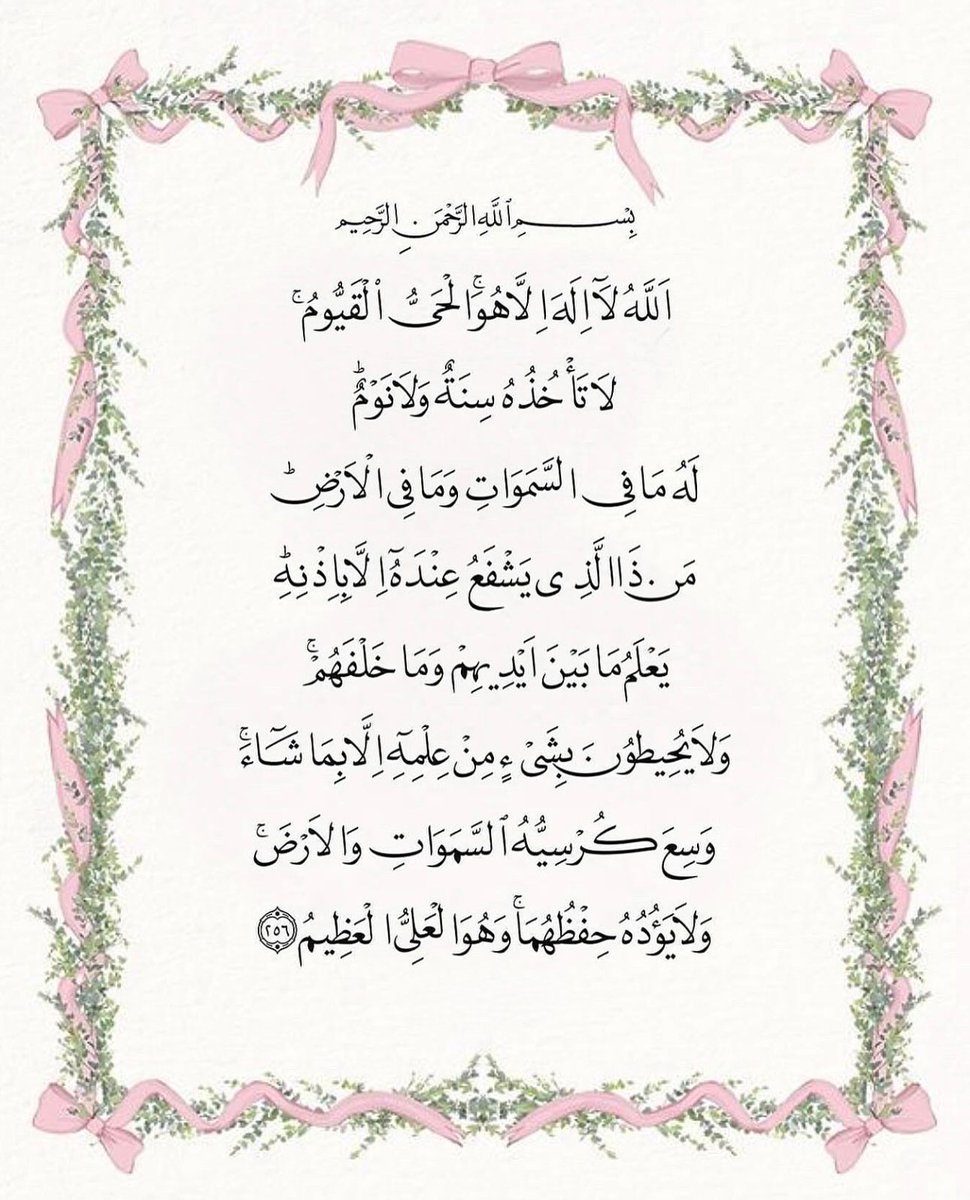 بِسْــــــمِ ٱللَّهِ الرَّحْمَنِ الرَّحِيمِ
اَللَّهُ لَآ اِلَهَ اِلَّا هُوَۚ الْحَىُّ ٱلْقَيُّومُۚ
لَا تَأْخُذُهُ سِنَةٌ وَلَا نَوْمٌؕ
لَهُ مَا فِى السَّمَوَاتِ وَمَا فِى الْاَرْضِؕ
مَن ذَا الَّذِى يَشْفَعُ عِنْدَهُٓ اِلَّا بِاِذْنِهِؕ
يَعْلَمُ مَا بَيْنَ اَيْدِيهِمْ وَمَا خَلْفَهُمْۚ
وَلَا يُحِيطُونَ بِشَىْءٍ مِنْ عِلْمِهِٓ اِلَّا بِمَا شَٓاءَۚ
وَسِعَ كُرْسِيُّهُ ٱلسَّمَوَاتِ وَالَارْضَۚ
وَلَا يَؤُدُهُ حِفْظُهُمَاۚ وَهُوَ الْعَلِىُّ الْعَظِيمُ ٢٥٦